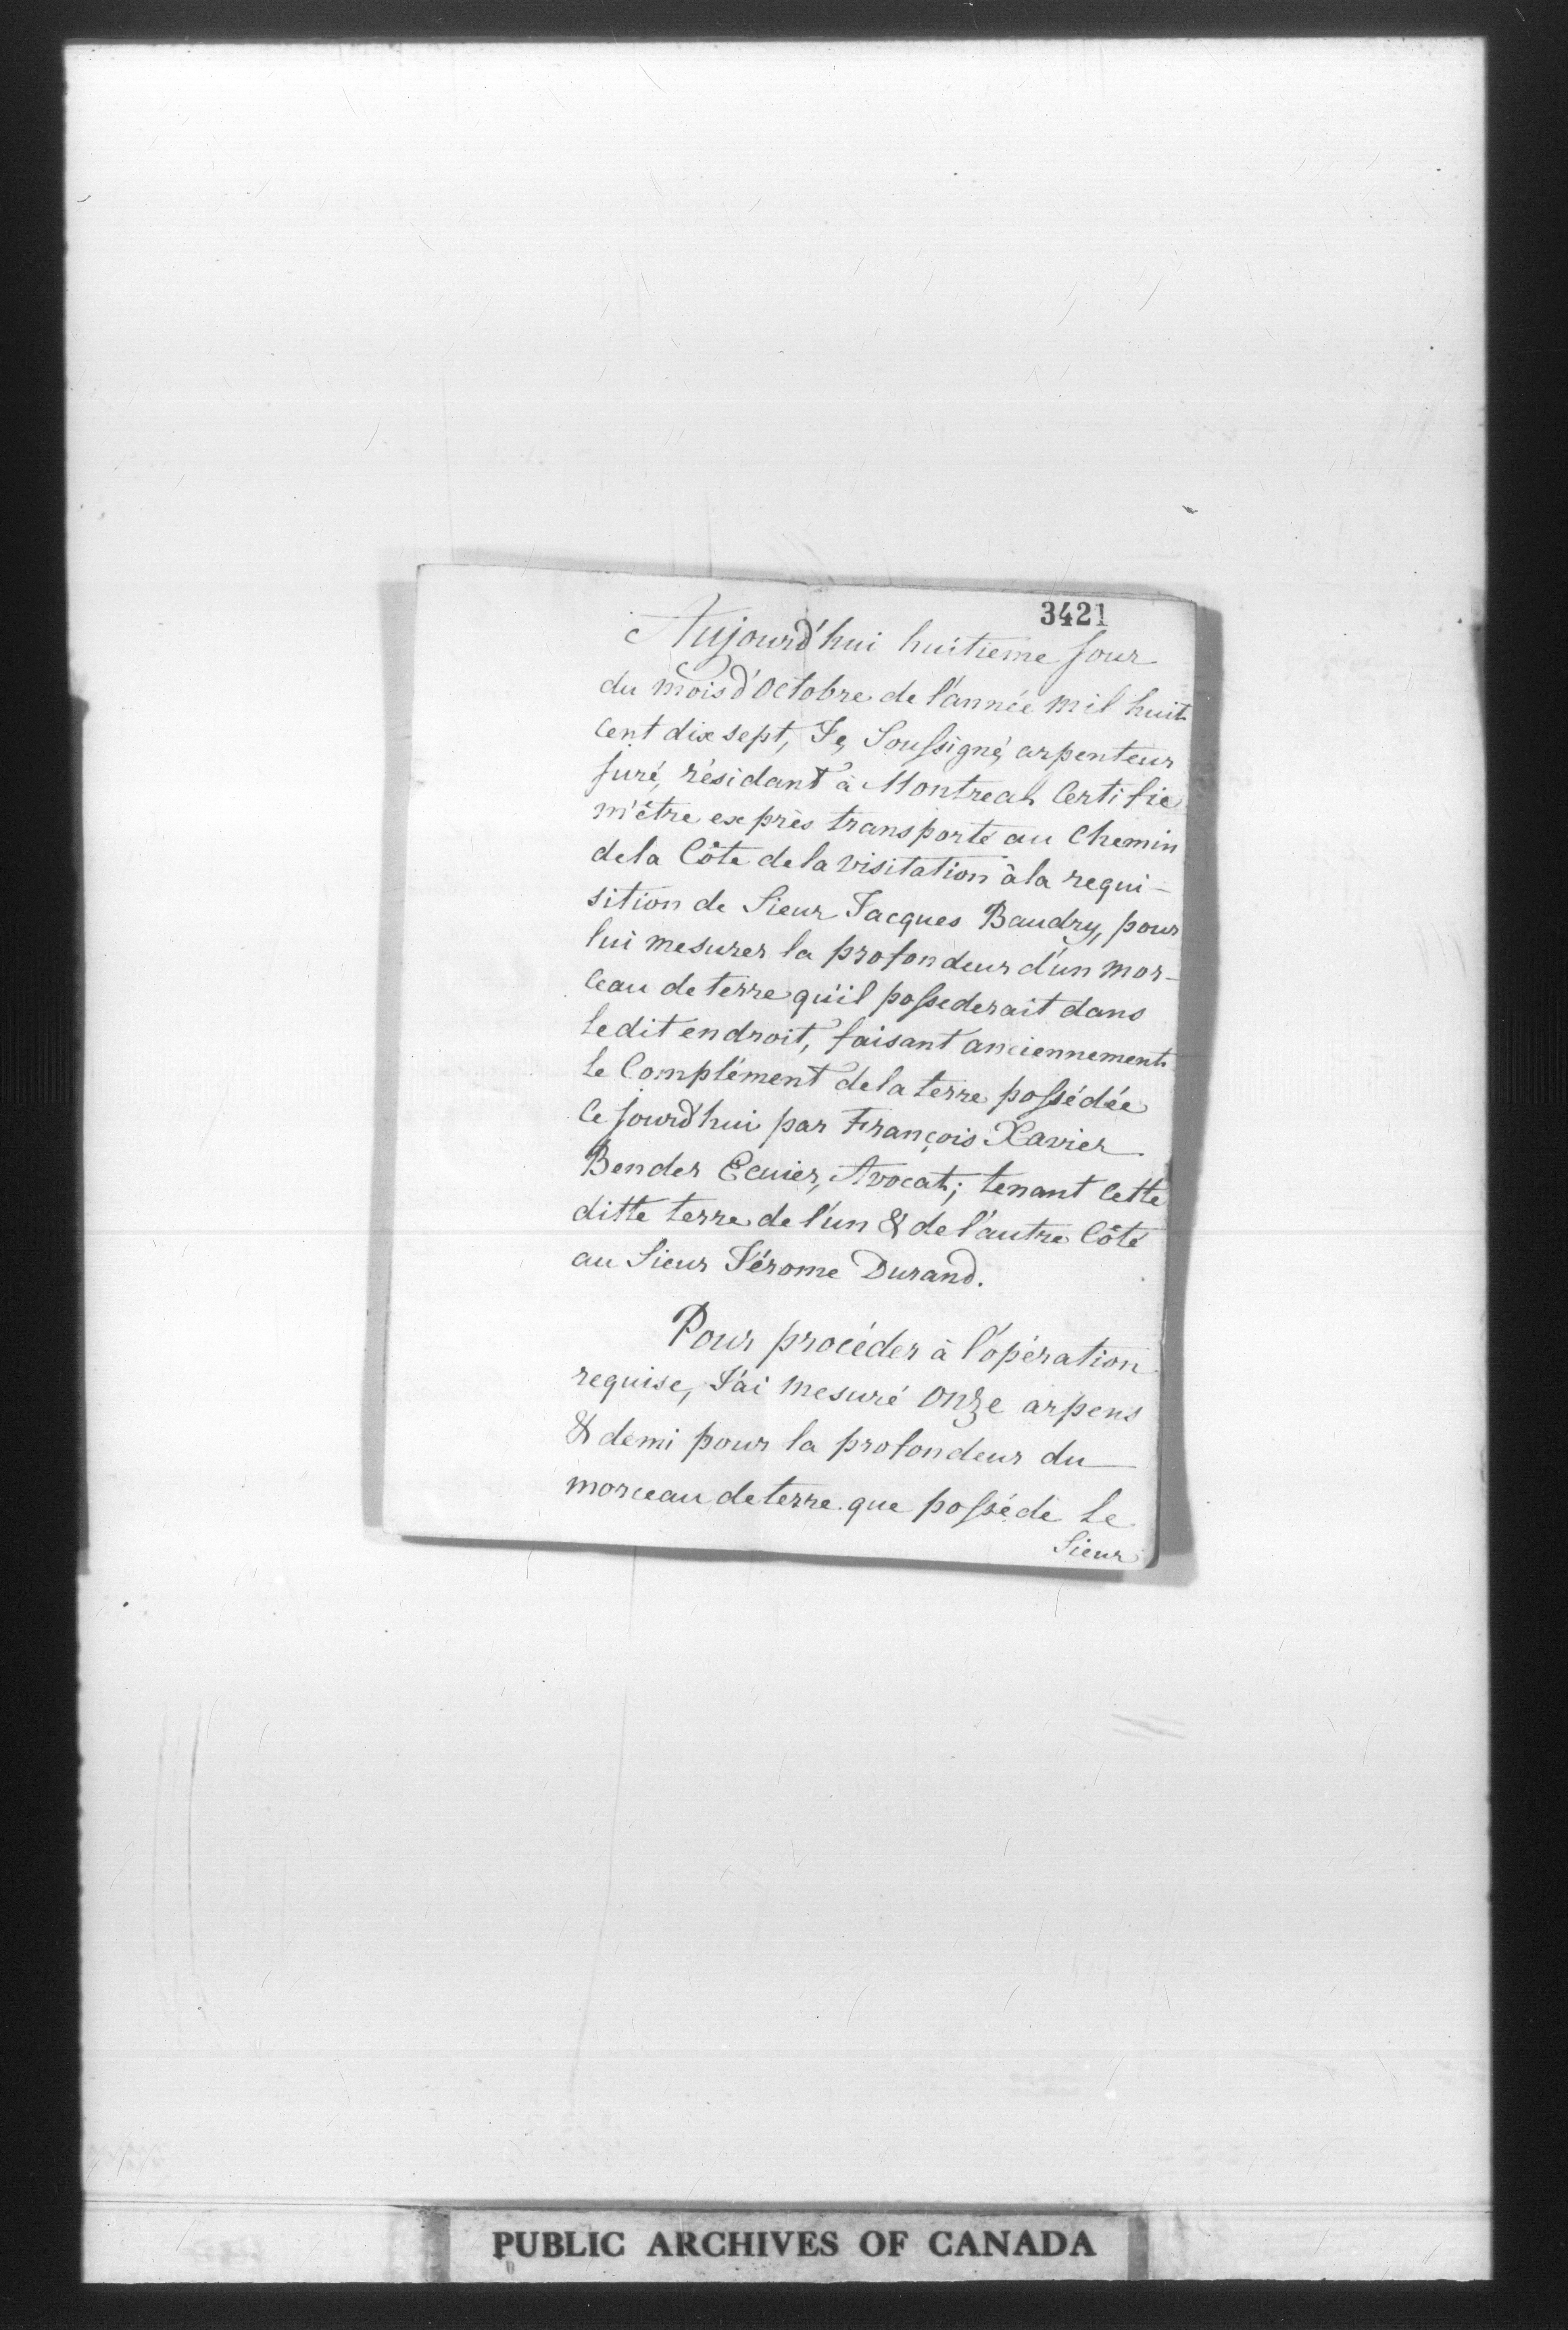 3421
Aujourd'hui huitieme Jour
du mois d'Octobre de l'année mil huit
Cent dix sept, Je, Soussigné, arpenteur
Juré, résidant à Montreal Certifie
m'être exprès transporté au Chemin
de la Côte de la visitation à la requi-
sition de Sieur Jacques Baudry, pour
lui mesurer la profondeur d'un mor-
ceau de terre qu'il possederait dans
Ledit endroit, faisant anciennement
Le Complément de la terre possédée
Ce Jourd'hui par François Xavier
Bender Ecuier, Avocat; tenant Cette
ditte terre de l'un & de l'autre Côté
au Sieur Jérome Durand.
Pour procéder à l'opération
requise, J'ai mesuré onze arpens
& demi pour la profondeur du
morceau de terre que posséde Le
Sieur
PUBLIC ARCHIVES OF CANADA